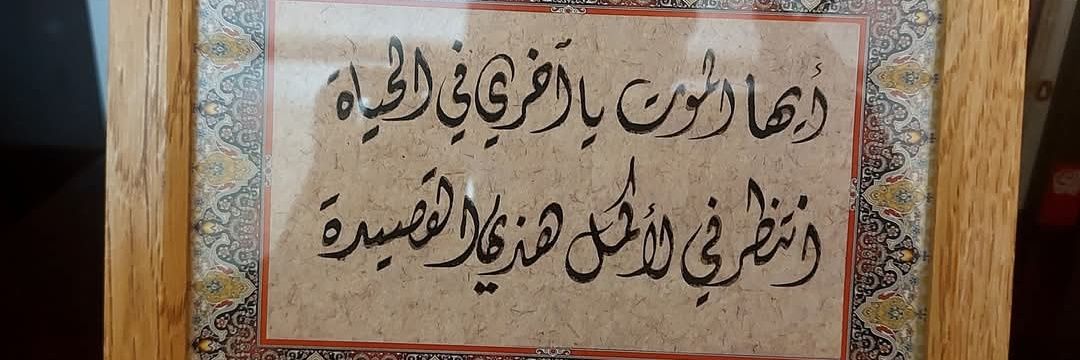 أيها الموت يا آخري في الحياة
انتظرني لأكمل هذي القصيدة